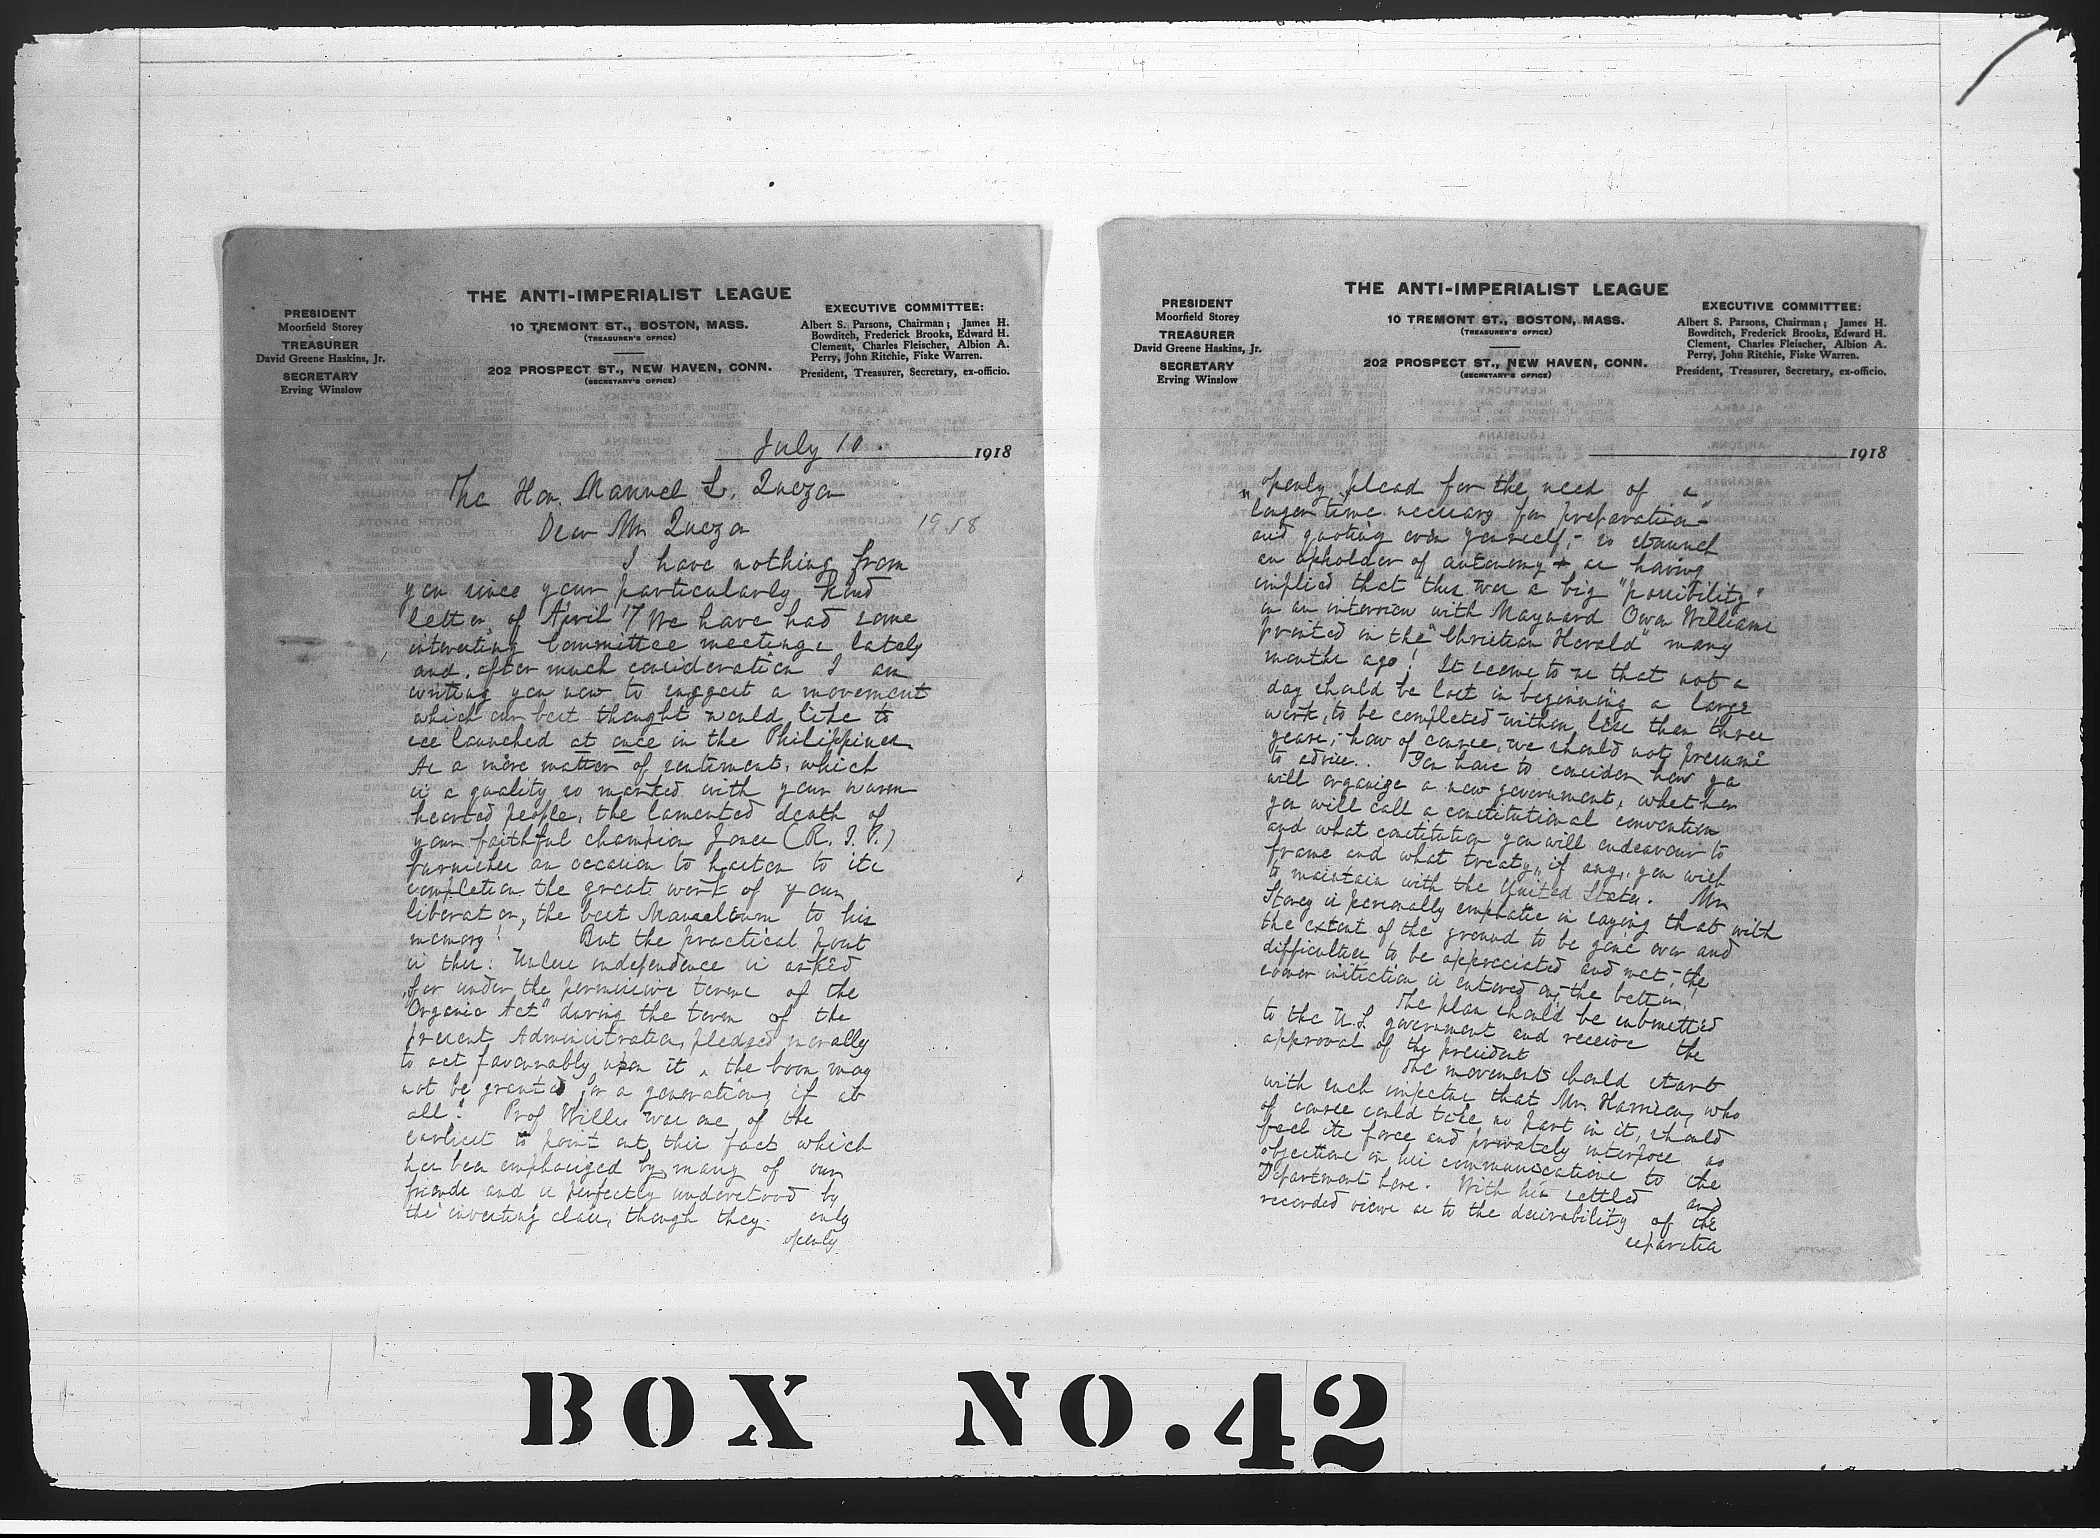 THE ANTI-IMPERIALIST LEAGUE
PRESIDENT
Moorfield Storey
TREASURER
David Greene Haskins, Jr.
SECRETARY
Erving Winslow
10 TREMONT ST., BOSTON, MASS.
(TREASURER'S OFFICE)
202 PROSPECT ST., NEW HAVEN, CONN.
(SECRETARY'S OFFICE)
EXECUTIVE COMMITTEE:
Albert S. Parsons, Chairman; James H.
Bowditch, Frederick Brooks, Edward H.
Clement, Charles Fleischer, Albion A.
Perry, John Ritchie, Fiske Warren.
President, Treasurer, Secretary, ex-officio.
July 10. 1918
The Hon. Manuel L. Quezon
Dear Mr Quezon
1918
I have nothing from
you since your particularly kind
letter of April 17 We have had some
interesting Committee meetings lately
and after much consideration I am
writing you now to suggest a movement
which our best thought would like to
see launched at once in the Philippines.
As a mere matter of sentiment, which
is a quality so marked with your warm
hearted people, the lamented death of
your faithful champion Jones (R. I. P.)
furnishes an occasion to hasten to its
completion the great work of your
liberation, the best Mausoleum to his
memory! But the practical point
is this: Unless independence is asked
for under the permissive terms of the
"Organic Act" during the term of the
present Administration, pledged morally
to act favourably upon it, the boon may
not be granted for a generation, if at
all! Prof Willis was one of the
earliest to point out this fact which
has been emphasized by many of our
friends and is perfectly understood by
the investing class, though they only
openly
THE ANTI-IMPERIALIST LEAGUE
PRESIDENT
Moorfield Storey
TREASURER
David Greene Haskins, Jr.
SECRETARY
Erving Winslow
10 TREMONT ST., BOSTON, MASS.
(TREASURER'S OFFICE)
202 PROSPECT ST., NEW HAVEN, CONN.
(SECRETARY'S OFFICE)
EXECUTIVE COMMITTEE:
Albert S. Parsons, Chairman; James H.
Bowditch, Frederick Brooks, Edward H.
Clement, Charles Fleischer, Albion A.
Perry, John Ritchie, Fiske Warren.
President, Treasurer, Secretary, ex-officio.
1918
openly plead for the need of a
"longer time necessary for preparation"
and quoting even yourself, - so staunch
an upholder of autonomy - as having
implied that this was a big "possibility"
in an interview with Maynard Owen Williams
printed in the "Christian Herald" many
months ago! It seems to us that not a
day should be lost in beginning a large
work, to be completed within less than three
years; - how of course, we should not presume
to advise. You have to consider how you
will organize a new government, whether
you will call a constitutional convention
and what constitution you will endeavour to
frame and what treaty, if any, you wish
to maintain with the United States. Mr
Storey is personally emphatic in saying that with
the extent of the ground to be gone over and
difficulties to be appreciated and met, - the
sooner initiation is entered on, the better!
The plan should be submitted
to the U.S. government and receive the
approval of the president
The movement should start
with such impetus that Mr. Harrison, who
of course could take no part in it, should
feel its force and privately interpose no
objections in his communications to the
Department here. With his settled and
recorded views as to the desirability of the
separation
BOX NO. 42